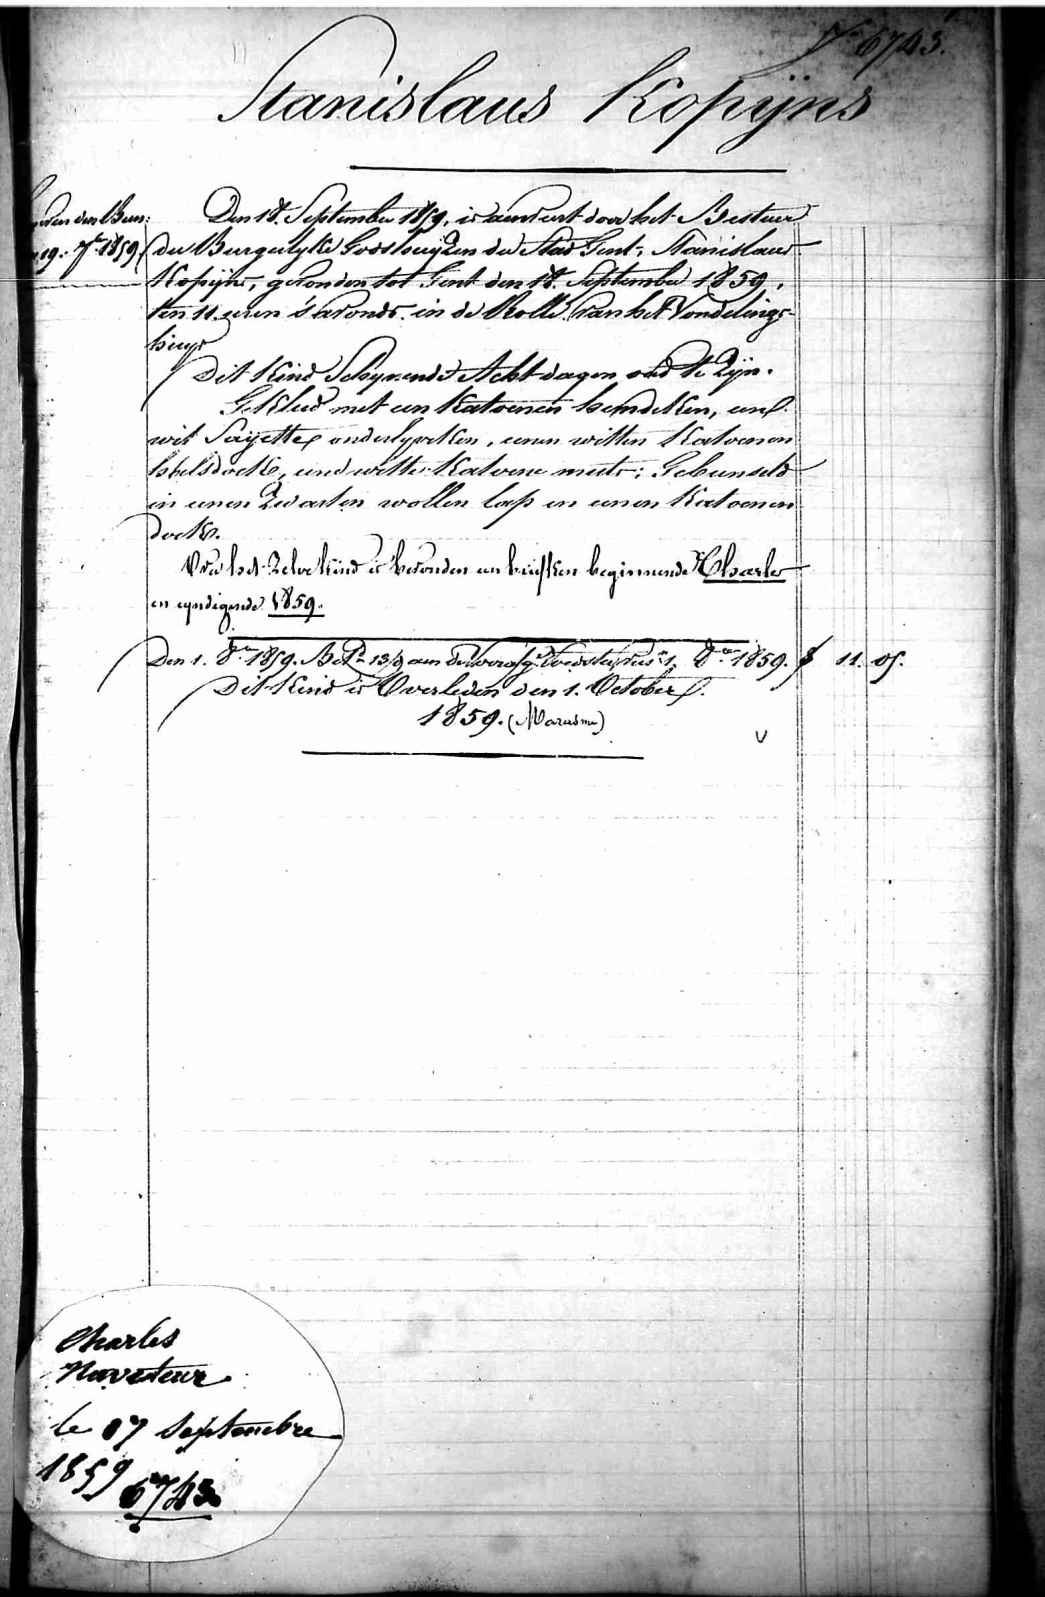 Nº 6743.
Stanislaus Kopijns
Den 18. September 1859, is aenveert door het Bestuer
der Burgerlyke Godshuijzen der Stad Gent, Stanislaus
Kopijns, gevonden tot Gent den 18. September 1859,
ten 11. uren s'avonds in de Rolle van het Vondelings-
huys
Dit Kind Schynende Acht dagen oud te Zijn.
Gekleed met een Katoenen hemdeken, een
wit Sayette onderlyveken, eenen witten Katoenen
halsdoek, eene witte Katoene muts; Gebunseld
in eenen Zwarten wollen lap en eenen Katoenen
doek.
Op het Zelve kind is bevonden een briefken beginnende Charles
en eyndigende 1859.
Den 1. 8ber 1859. 11. 05.
Dit Kind is Overleden den 1. October
1859. (Marasme)
Charles
Naveteur
le 07 Septembre
1859
6743